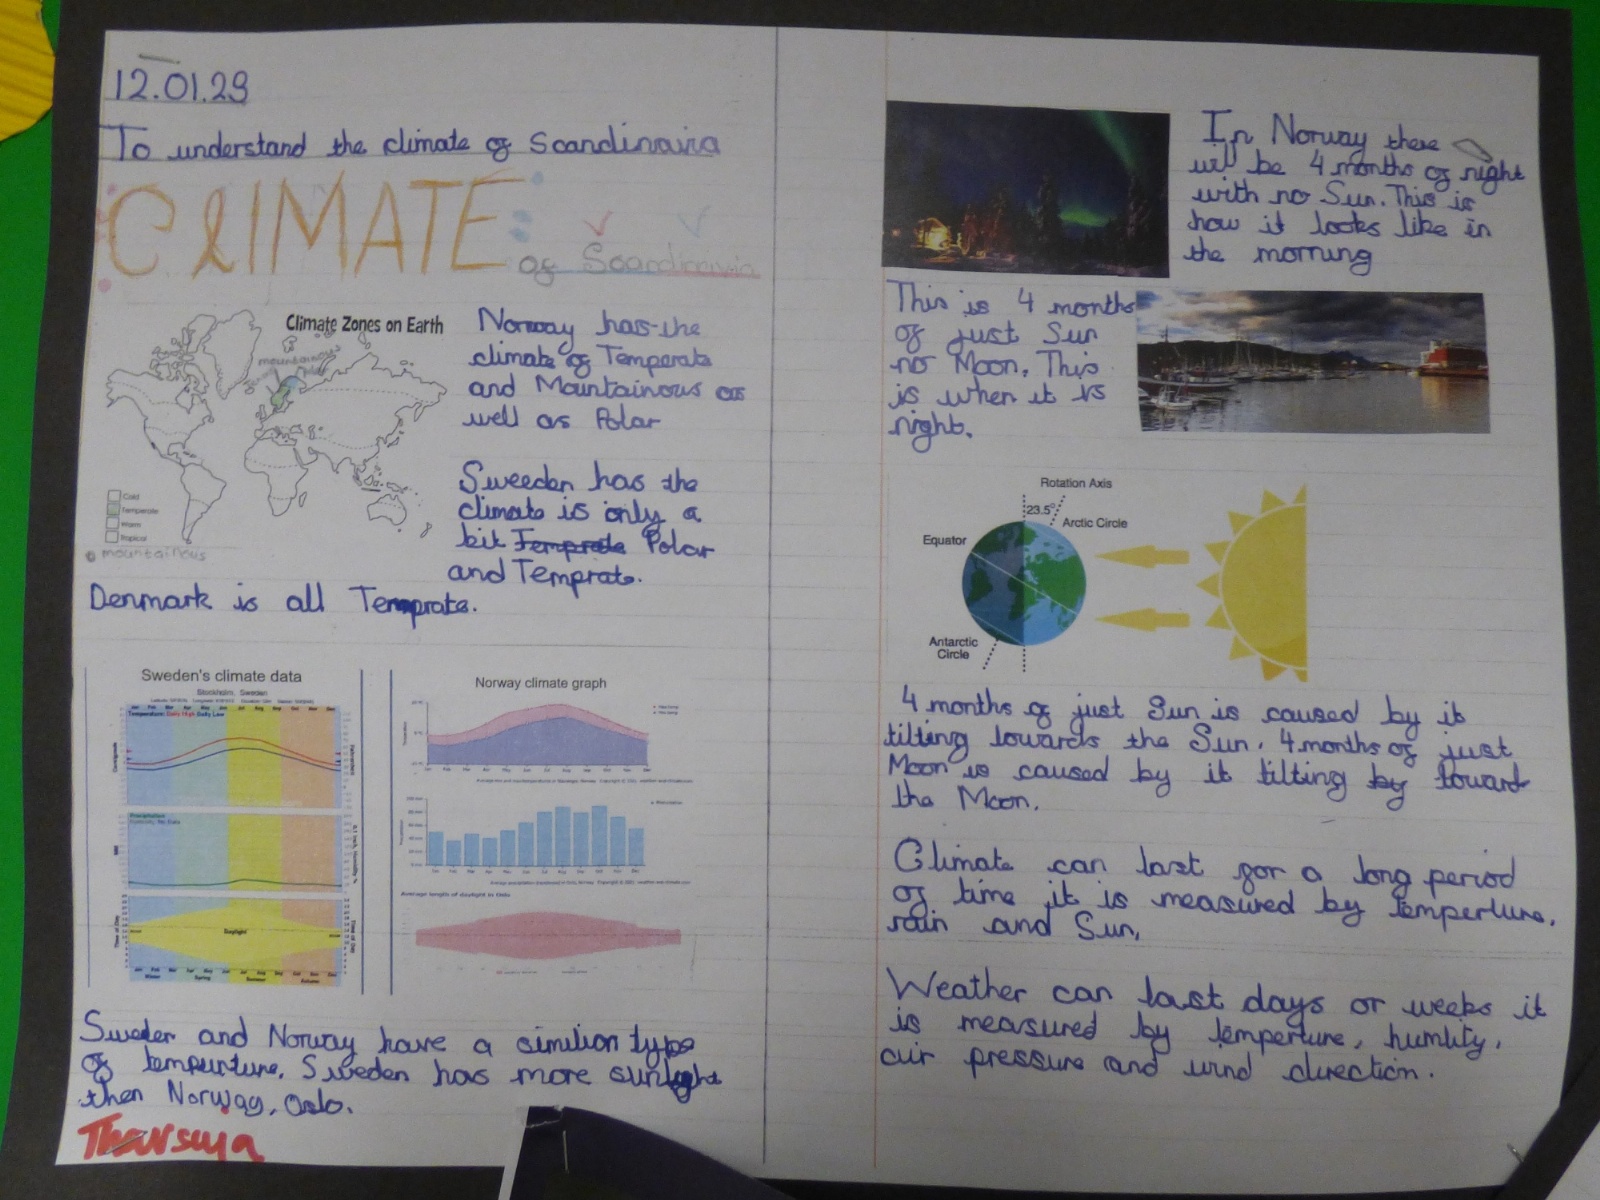 12.01.23
To understand the climate of Scandinavia
ClIMATE
of Scandinavia
Climate Zones on Earth
mountainous
Cold
Temperate
Warm
Tropical
mountainous
Norway has the
climate of Temperate
and Mountainous as
well as Polar
Sweeden has the
climate is only a
bit Temprate Polar
and Temprate.
Denmark is all Temprate.
Sweden's climate data
Stockholm, Sweden
Temperature: Daily High, Daily Low
Precipitation
Daylight
Winter Spring Summer Autumn
Norway climate graph
Average length of daylight in Oslo
Sweden and Norway have a similion type
of tempurture. Sweden has more sunlight
then Norway, Oslo.
Tharsuya
In Norway there
will be 4 months of night
with no Sun. This is
how it looks like in
the morning
This is 4 months
of just Sun
no Moon. This
is when it is
night.
Rotation Axis
23.5°
Arctic Circle
Equator
Antarctic
Circle
4 months of just Sun is caused by it
tilting towards the Sun. 4 months of just
Moon is caused by it tilting by toward
the Moon.
Climate can last for a long period
of time it is measured by temperture,
rain and Sun.
Weather can last days or weeks it
is measured by temperture, humlity,
air pressure and wind direction.